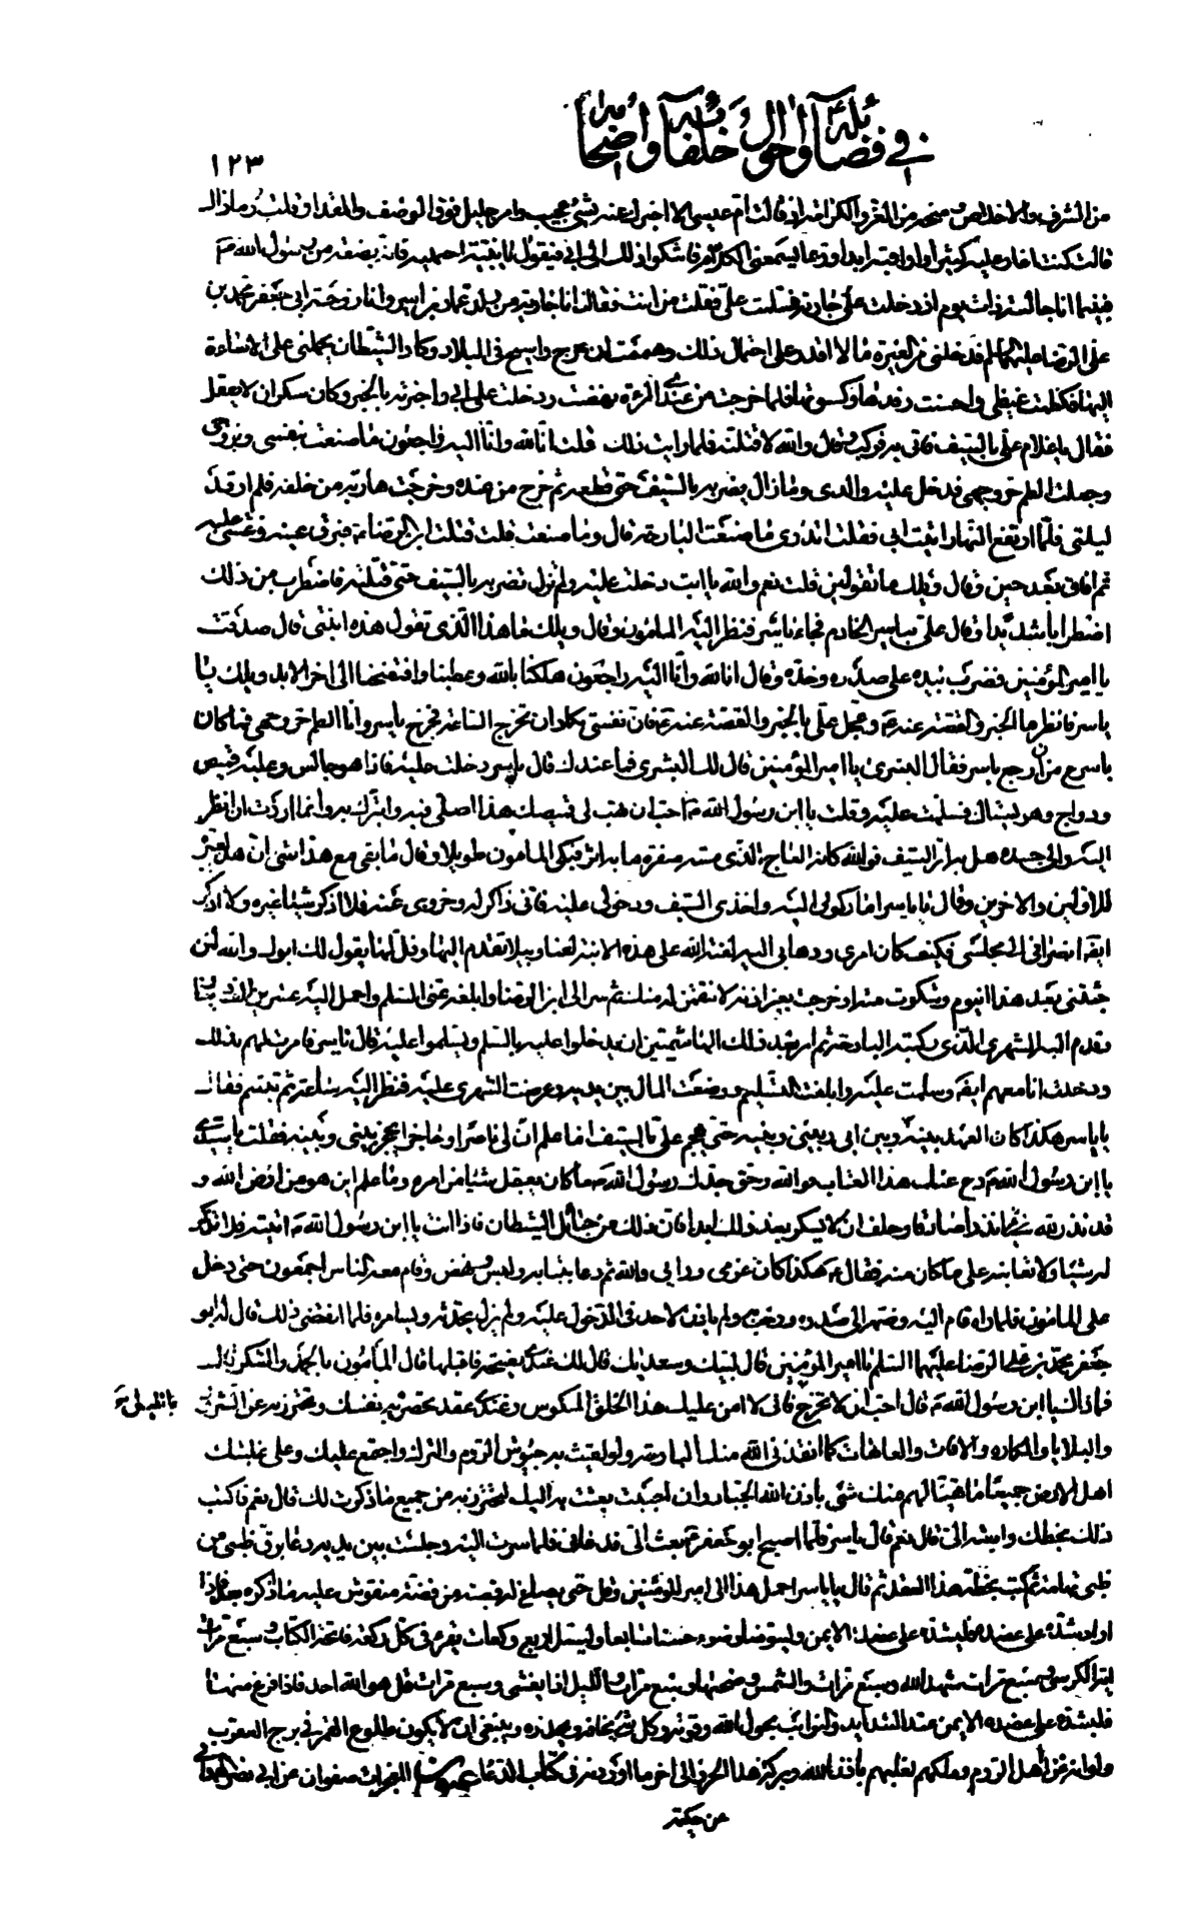 في فضائله وأحوال خلفائه وأصحابه
١٢٣
من الشرف والاخلاص ومنحه من العز والكرامة اذ قالت ام عيسى الا اخبرك عنه بشئ عجيب وامر جليل فوق الوصف والمقدار قلت وما ذاك
قالت كنت اغار عليه كثيرا واراقبه ابدا وربما يسمعني الكلام فاشكو ذلك الى ابي فيقول يا بنية احتمليه فانه بضعة من رسول الله ص
فبينما انا جالسة ذات يوم اذ دخلت على جارية فسلمت علي فقلت من انت فقالت انا جارية من ولد عمار بن ياسر وانا زوجة ابي جعفر محمد بن
علي الرضا عليهما السلم فدخلني من الغيرة ما لا اقدر على احتمال ذلك وهممت ان اخرج واسيح في البلاد وكاد الشيطان يحملني على الاساءة
اليها فكظمت غيظي واحسنت رفدها وكسوتها فلما خرجت من عندي المرءة نهضت ودخلت على ابي واخبرته بالخبر وكان سكران لا يعقل
فقال يا غلام علي بالسيف فاتي به فركب وقال والله لاقتلنه فلما رايت ذلك قلت انا لله وانا اليه راجعون ما صنعت بنفسي وبزوجي
وجعلت الطم حر وجهي فدخل عليه والدي وما زال يضربه بالسيف حتى قطعه ثم خرج من عنده وخرجت هاربة من خلفه فلم ارقد
ليلتي فلما ارتفع النهار اتيت ابي فقلت اتدري ما صنعت البارحة قال وما صنعت قلت قتلت ابن الرضا ع فبرق عينه وغشي عليه
ثم افاق بعد حين وقال ويلك ما تقولين قلت نعم والله يا ابت دخلت عليه ولم تزل تضربه بالسيف حتى قتلته فاضطرب من ذلك
اضطرابا شديدا وقال علي بياسر الخادم فجاء ياسر فنظر اليه المامون وقال ويلك ما هذا الذي تقول هذه ابنتي قال صدقت
يا امير المؤمنين فضرب بيده على صدره وخده وقال انا لله وانا اليه راجعون هلكنا بالله وعطبنا وافتضحنا الى اخر الابد ويلك يا
ياسر فانظر ما الخبر والقصة عنه ع وعجل علي بالخبر والقصة عنه ع فان نفسي تكاد ان تخرج الساعة فخرج ياسر وانا الطم حر وجهي فما كان
باسرع من ان رجع ياسر فقال البشرى يا امير المؤمنين قال لك البشرى فما عندك قال ياسر دخلت عليه فاذا هو جالس وعليه قميص
ودواج وهو يستاك فسلمت عليه وقلت يا ابن رسول الله ص احب ان تهب لي قميصك هذا اصلي فيه واتبرك به وانما اردت ان انظر
اليه والى جسده هل به اثر السيف فوالله كانه العاج الذي مسه صفرة ما به اثر فبكى المامون طويلا وقال ما بقي مع هذا شئ ان هذا لعبرة
للاولين والاخرين وقال يا ياسر اما ركوبي اليه واخذي السيف ودخولي عليه فاني ذاكر له وخروجي عنه فلا اذكر شيئا غيره ولا اذكر
ايضا انصرافي الى مجلسي فكيف كان امري وذهابي اليه لعنة الله على هذه الابنة لعنا وبيلا تقدم اليها وقل لها يقول لك ابوك والله لئن
جئتني بعد هذا اليوم وشكوت منه او خرجت بغير اذنه لانتقمن له منك ثم سر الى ابن الرضا وابلغه عني السلم واحمل اليه عشرين الف دينار
وقدم اليه الشهري الذي ركبته البارحة ثم امر بعد ذلك الهاشميين ان يدخلوا عليه بالسلم ويسلموا عليه قال ياسر فامرت لهم بذلك
ودخلت انا معهم ايضا وسلمت عليه وابلغت التسليم ووضعت المال بين يديه وعرضت الشهري عليه فنظر اليه ساعة ثم تبسم فقال
يا ياسر هكذا كان العهد بينه وبين ابي وبيني وبينه حتى يهجم علي بالسيف اما علم ان لي ناصرا وحاجزا يحجز بيني وبينه فقلت يا سيدي
يا ابن رسول الله ص دع عنك هذا العتاب فوالله وحق جدك رسول الله ص ما كان يعقل شيئا من امره وما علم اين هو من ارض الله و
قد نذر لله نذرا صادقا وحلف ان لا يسكر بعد ذلك ابدا فان ذلك من حبائل الشيطان فاذا انت يا ابن رسول الله ص اتيته فلا تذكر
له شيئا ولا تعاتبه على ما كان منه فقال ع هكذا كان عزمي ورايي والله ثم دعا بثيابه ولبس ونهض وقام معه الناس اجمعون حتى دخل
على المامون فلما راه قام اليه وضمه الى صدره ورحب به ولم ياذن لاحد في الدخول عليه ولم يزل يحدثه ويسامره فلما انقضى ذلك قال له ابو
جعفر محمد بن علي الرضا عليهما السلم يا امير المؤمنين قال لبيك وسعديك قال لك عندي نصيحة فاقبلها قال المامون بالحمد والشكر
فما ذاك يا ابن رسول الله ص قال احب ان لا تخرج فاني لا امن عليك هذا الخلق المنكوس وعندي عقد تحصن به نفسك وتحترز به عن الشرور
والبلايا والمكاره والافات والعاهات كما انقذني الله منك البارحة ولو لقيت به جيوش الروم والترك واجتمع عليك وعلى غلبتك
اهل الارض جميعا ما تهيا لهم منك شئ باذن الله الجبار وان احببت بعثت به اليك لتحترز به من جميع ما ذكرت لك قال نعم فاكتب
ذلك بخطك وابعثه الي قال نعم قال ياسر فلما اصبح ابو جعفر ع بعث الي فدعاني فلما صرت اليه وجلست بين يديه دعا برق ظبي من
ظبي تهامة ثم كتب بخطه هذا العقد ثم قال يا ياسر احمل هذا الى امير المؤمنين وقل حتى يصاغ له قصبة من فضة منقوش عليه ما اذكره بعد فاذا
اراد شده على عضده فليشده على عضده الايمن وليتوضا وضوء حسنا سابغا وليصل اربع ركعات يقرء في كل ركعة فاتحة الكتاب وسبع مرات
اية الكرسي وسبع مرات شهد الله وسبع مرات والشمس وضحيها وسبع مرات والليل اذا يغشى وسبع مرات قل هو الله احد فاذا فرغ منها
فليشده على عضده الايمن عند الشدايد والنوائب بحول الله وقوته وكل شئ يخافه ويحذره وينبغي ان لا يكون طلوع القمر في برج العقرب
ولو انه غزى اهل الروم وملكهم لغلبهم باذن الله وبركة هذا الحرز الى اخر ما اوردته في كتاب الدعاء صفوان عن ابي نصر الهمداني
عن حكيمة